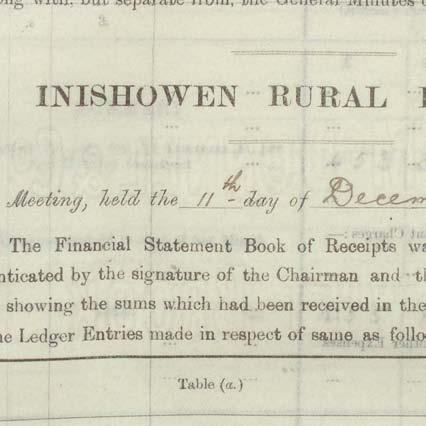 ong with, but separate from, the General Minutes o
INISHOWEN RURAL
Meeting, held the 11th day of Decem
The Financial Statement Book of Receipts wa
enticated by the signature of the Chairman and th
showing the sums which had been received in the
ne Ledger Entries made in respect of same as follo
Table (a.)